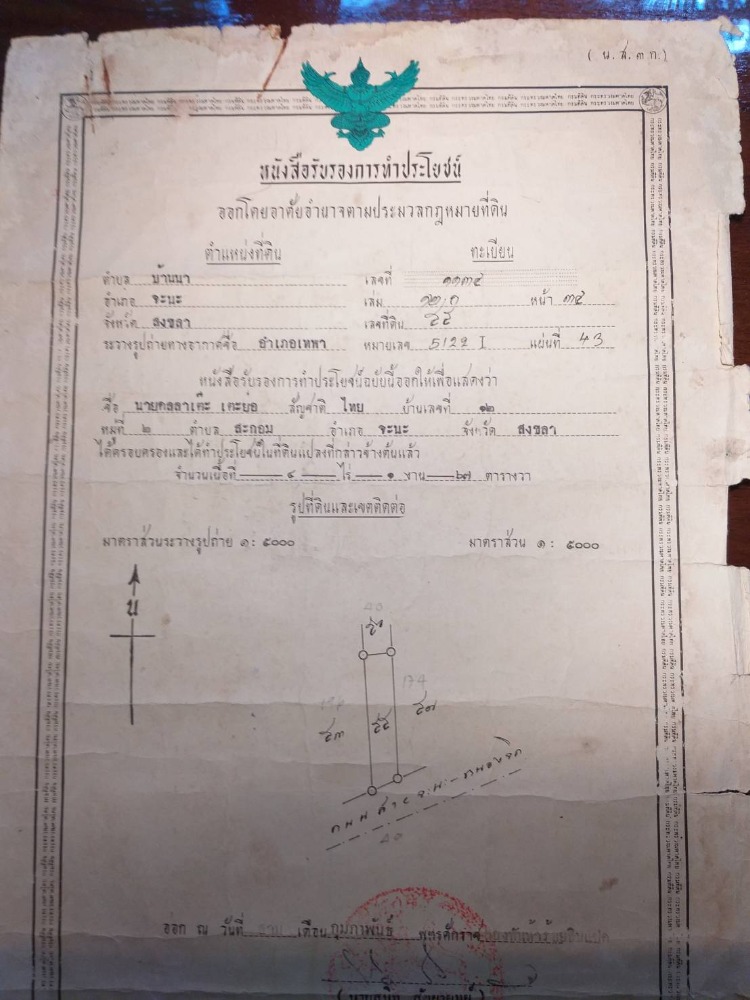 ( น.ส.๓ ก.)
หนังสือรับรองการทำประโยชน์
ออกโดยอาศัยอำนาจตามประมวลกฎหมายที่ดิน
ตำแหน่งที่ดิน ทะเบียน
ตำบล บ้านนา เลขที่ ๑๑๓๕
อำเภอ จะนะ เล่ม หน้า ๓๕
จังหวัด สงขลา เลขที่ดิน ๕๕
ระวางรูปถ่ายทางอากาศชื่อ อำเภอเทพา หมายเลข 5122 I แผ่นที่ 43
หนังสือรับรองการทำประโยชน์ฉบับนี้ออกให้เพื่อแสดงว่า
ชื่อ สัญชาติ ไทย บ้านเลขที่ ๑๒
หมู่ที่ ๒ ตำบล สะกอม อำเภอ จะนะ จังหวัด สงขลา
ได้ครอบครองและได้ทำประโยชน์ในที่ดินแปลงที่กล่าวข้างต้นแล้ว
จำนวนเนื้อที่ ๔ ไร่ ๑ งาน ๒๗ ตารางวา
รูปที่ดินและเขตติดต่อ
มาตราส่วนระวางรูปถ่าย ๑: ๕๐๐๐ มาตราส่วน ๑: ๕๐๐๐
น
40
174
๕๓ ๕๕ ๕๗
40
ออก ณ วันที่ เดือน กุมภาพันธ์ พุทธศักราช